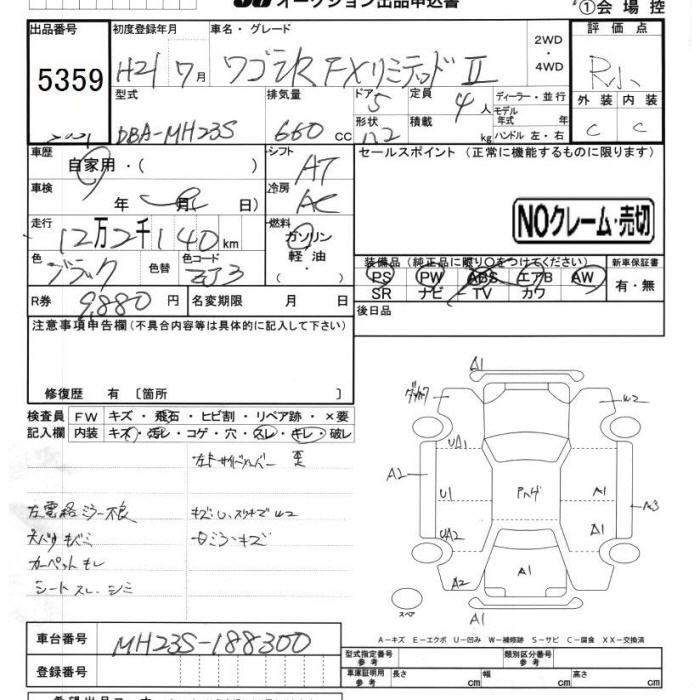 オークション出品申込書
①会場控
出品番号 初度登録年月 車名・グレード 評価点
5359 H21 7月 ワゴンR FXリミテッドⅡ 2WD ・ 4WD R小
型式 排気量 ドア 定員 ディーラー・並行 外装 内装
DBA-MH23S 660 cc 5 4人 モデル年式 年 C C
形状 積載 kg ハンドル 左・右
車歴 自家用・( ) シフト AT セールスポイント (正常に機能するものに限ります)
車検 年 月 日) 冷房 AC
NOクレーム・売切
走行 12万2千140km 燃料 ガソリン 軽油
色 ブラック 色替 色コード ZJ3
装備品(純正品に限り○をつけてください) 新車保証書
PS PW ABS エアB AW 有・無
SR ナビ TV カワ
R券 9,880円 名変期限 月 日 後日品
注意事項申告欄(不具合内容等は具体的に記入して下さい)
修復歴 有 〔箇所 〕
検査員 FW キズ・飛石・ヒビ割・リペア跡・×要
記入欄 内装 キズ・汚レ・コゲ・穴・スレ・キレ・破レ
左電格ミラー不良
カーペットキレ
シートスレ、シミ
A1
W2
UA1
A2
U1
A1
A3
UA2
A1
A2
A1
スペア
A1
A－キズ E－エクボ U－凹み W－補修跡 S－サビ C－腐食 XX－交換済
車台番号 MH23S-188300
登録番号
型式指定番号 参考 類別区分番号 参考
車庫証明用 参考 長さ cm 幅 cm 高さ cm